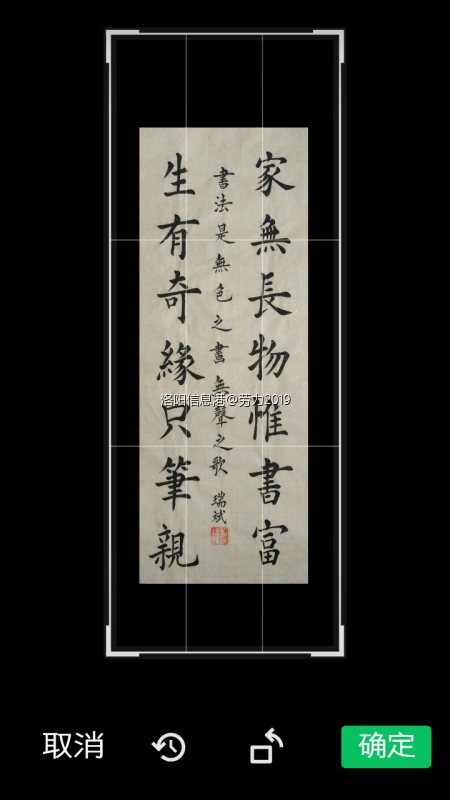 家無長物惟書富
書法是無色之畫無聲之歌 瑞斌
生有奇緣只筆親
洛阳信息港@劳力2019
取消
确定